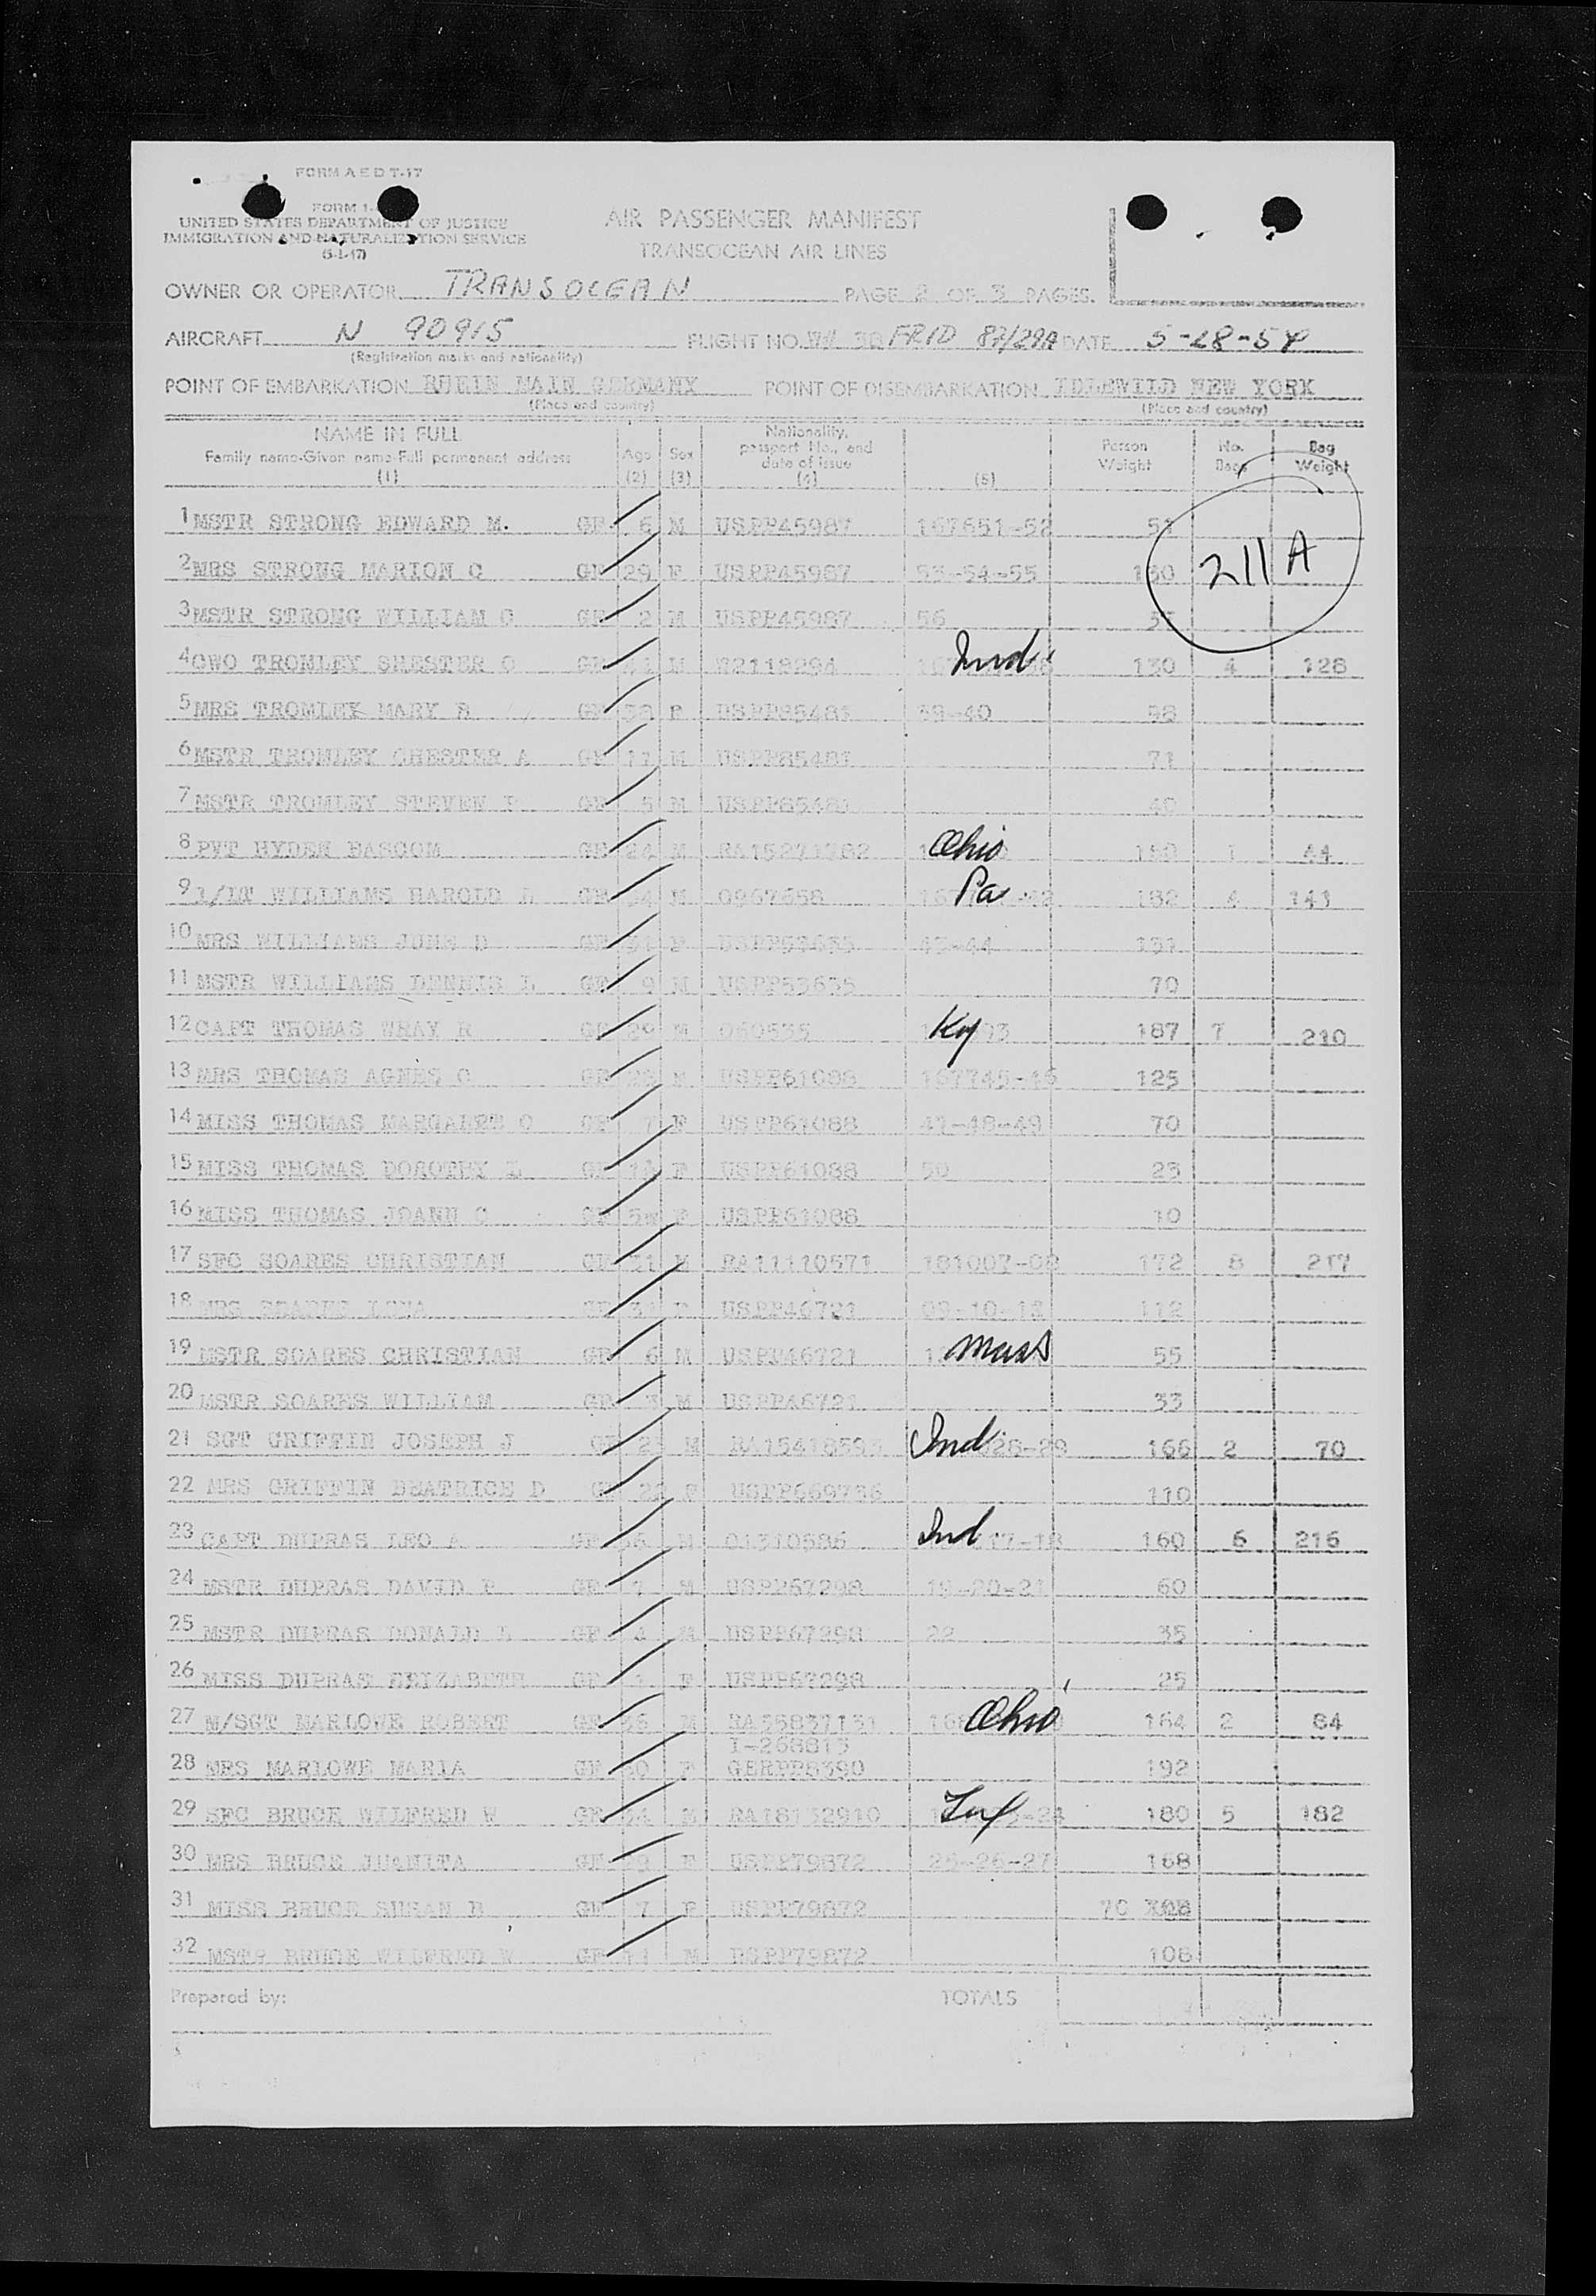 FORM A E D T-17
FORM 1-
UNITED STATES DEPARTMENT OF JUSTICE
IMMIGRATION AND NATURALIZATION SERVICE
(5-1-47)
AIR PASSENGER MANIFEST
TRANSOCEAN AIR LINES
OWNER OR OPERATOR TRANSOCEAN PAGE 2 OF 3 PAGES.
AIRCRAFT N 90915 FLIGHT NO. FRID 87/29A DATE 5-28-54
(Registration marks and nationality)
POINT OF EMBARKATION RHEIN MAIN GERMANY POINT OF DISEMBARKATION IDLEWILD NEW YORK
(Place and country) (Place and country)
NAME IN FULL Age Sex Nationality, passport No., and date of issue Person Weight No. Bags Bag Weight
Family name-Given name-Full permanent address
(1) (2) (3) (4) (5)
211 A
1 MSTR STRONG EDWARD M. GE 6 M USPP45987 167651-52 51
2 MRS STRONG MARION C GE 29 F USPP45987 53-54-55 130
3 MSTR STRONG WILLIAM C GE 2 M USPP45987 56
4 CWO TROMLEY CHESTER O GE M W2118294 Ind 130 4 128
5 MRS TROMLEY MARY GE F 39-40 98
6 MSTR TROMLEY CHESTER A GE 11 M 71
7 MSTR TROMLEY STEVEN GE 5 M 40
8 PVT HYDEN BASCOM GE 24 M Ohio 1 44
9 1/LT WILLIAMS HAROLD L GE M 0967658 Pa 182 4 141
10 MRS WILLIAMS JUNE D GE F USPP53635 43-44 131
11 MSTR WILLIAMS DENNIS L GE 9 M USPP53635 70
12 CAPT THOMAS WRAY R GE 29 M 060535 Ky 93 187 7 210
13 MRS THOMAS AGNES C GE USPP61088 167745-46 125
14 MISS THOMAS MARGARET C GE 7 F USPP61088 47-48-49 70
15 MISS THOMAS DOROTHY L GE F USPP61088 50 23
16 MISS THOMAS JOANN C GE F USPP61088 10
17 SFC SOARES CHRISTIAN GE 31 M RA11110571 181007-08 172 8 217
18 MRS SOARES GE 31 F USPP46721 09-10-12 112
19 MSTR SOARES CHRISTIAN GE 6 M USPP46721 Mass 55
20 MSTR SOARES WILLIAM GE 3 M USPP46721 33
21 SGT GRIFFIN JOSEPH J GE M Ind 28-29 166 2 70
22 MRS GRIFFIN BEATRICE D GE 22 F USPP669736 110
23 CAPT DUPRAS LEO A GE M 01310586 Ind 17-18 160 6 216
24 MSTR DUPRAS DAVID P GE 7 M USPP67298 19-20-21 60
25 MSTR DUPRAS DONALD L GE 4 M USPP67298 22 35
26 MISS DUPRAS GE F USPP67298 25
27 M/SGT MARLOWE ROBERT GE M RA35837131 Ohio 164 2 84
I-268813
28 MRS MARLOWE MARIA GE F GERPP8390 192
29 SFC BRUCE WILFRED W GE M RA18132910 180 5 182
30 MRS BRUCE JUANITA GE F USPP79872 25-26-27 168
31 MISS BRUCE SUSAN B GE 7 F USPP79872 70
32 MSTR BRUCE WILFRED W GE M USPP79872 106
Prepared by: TOTALS